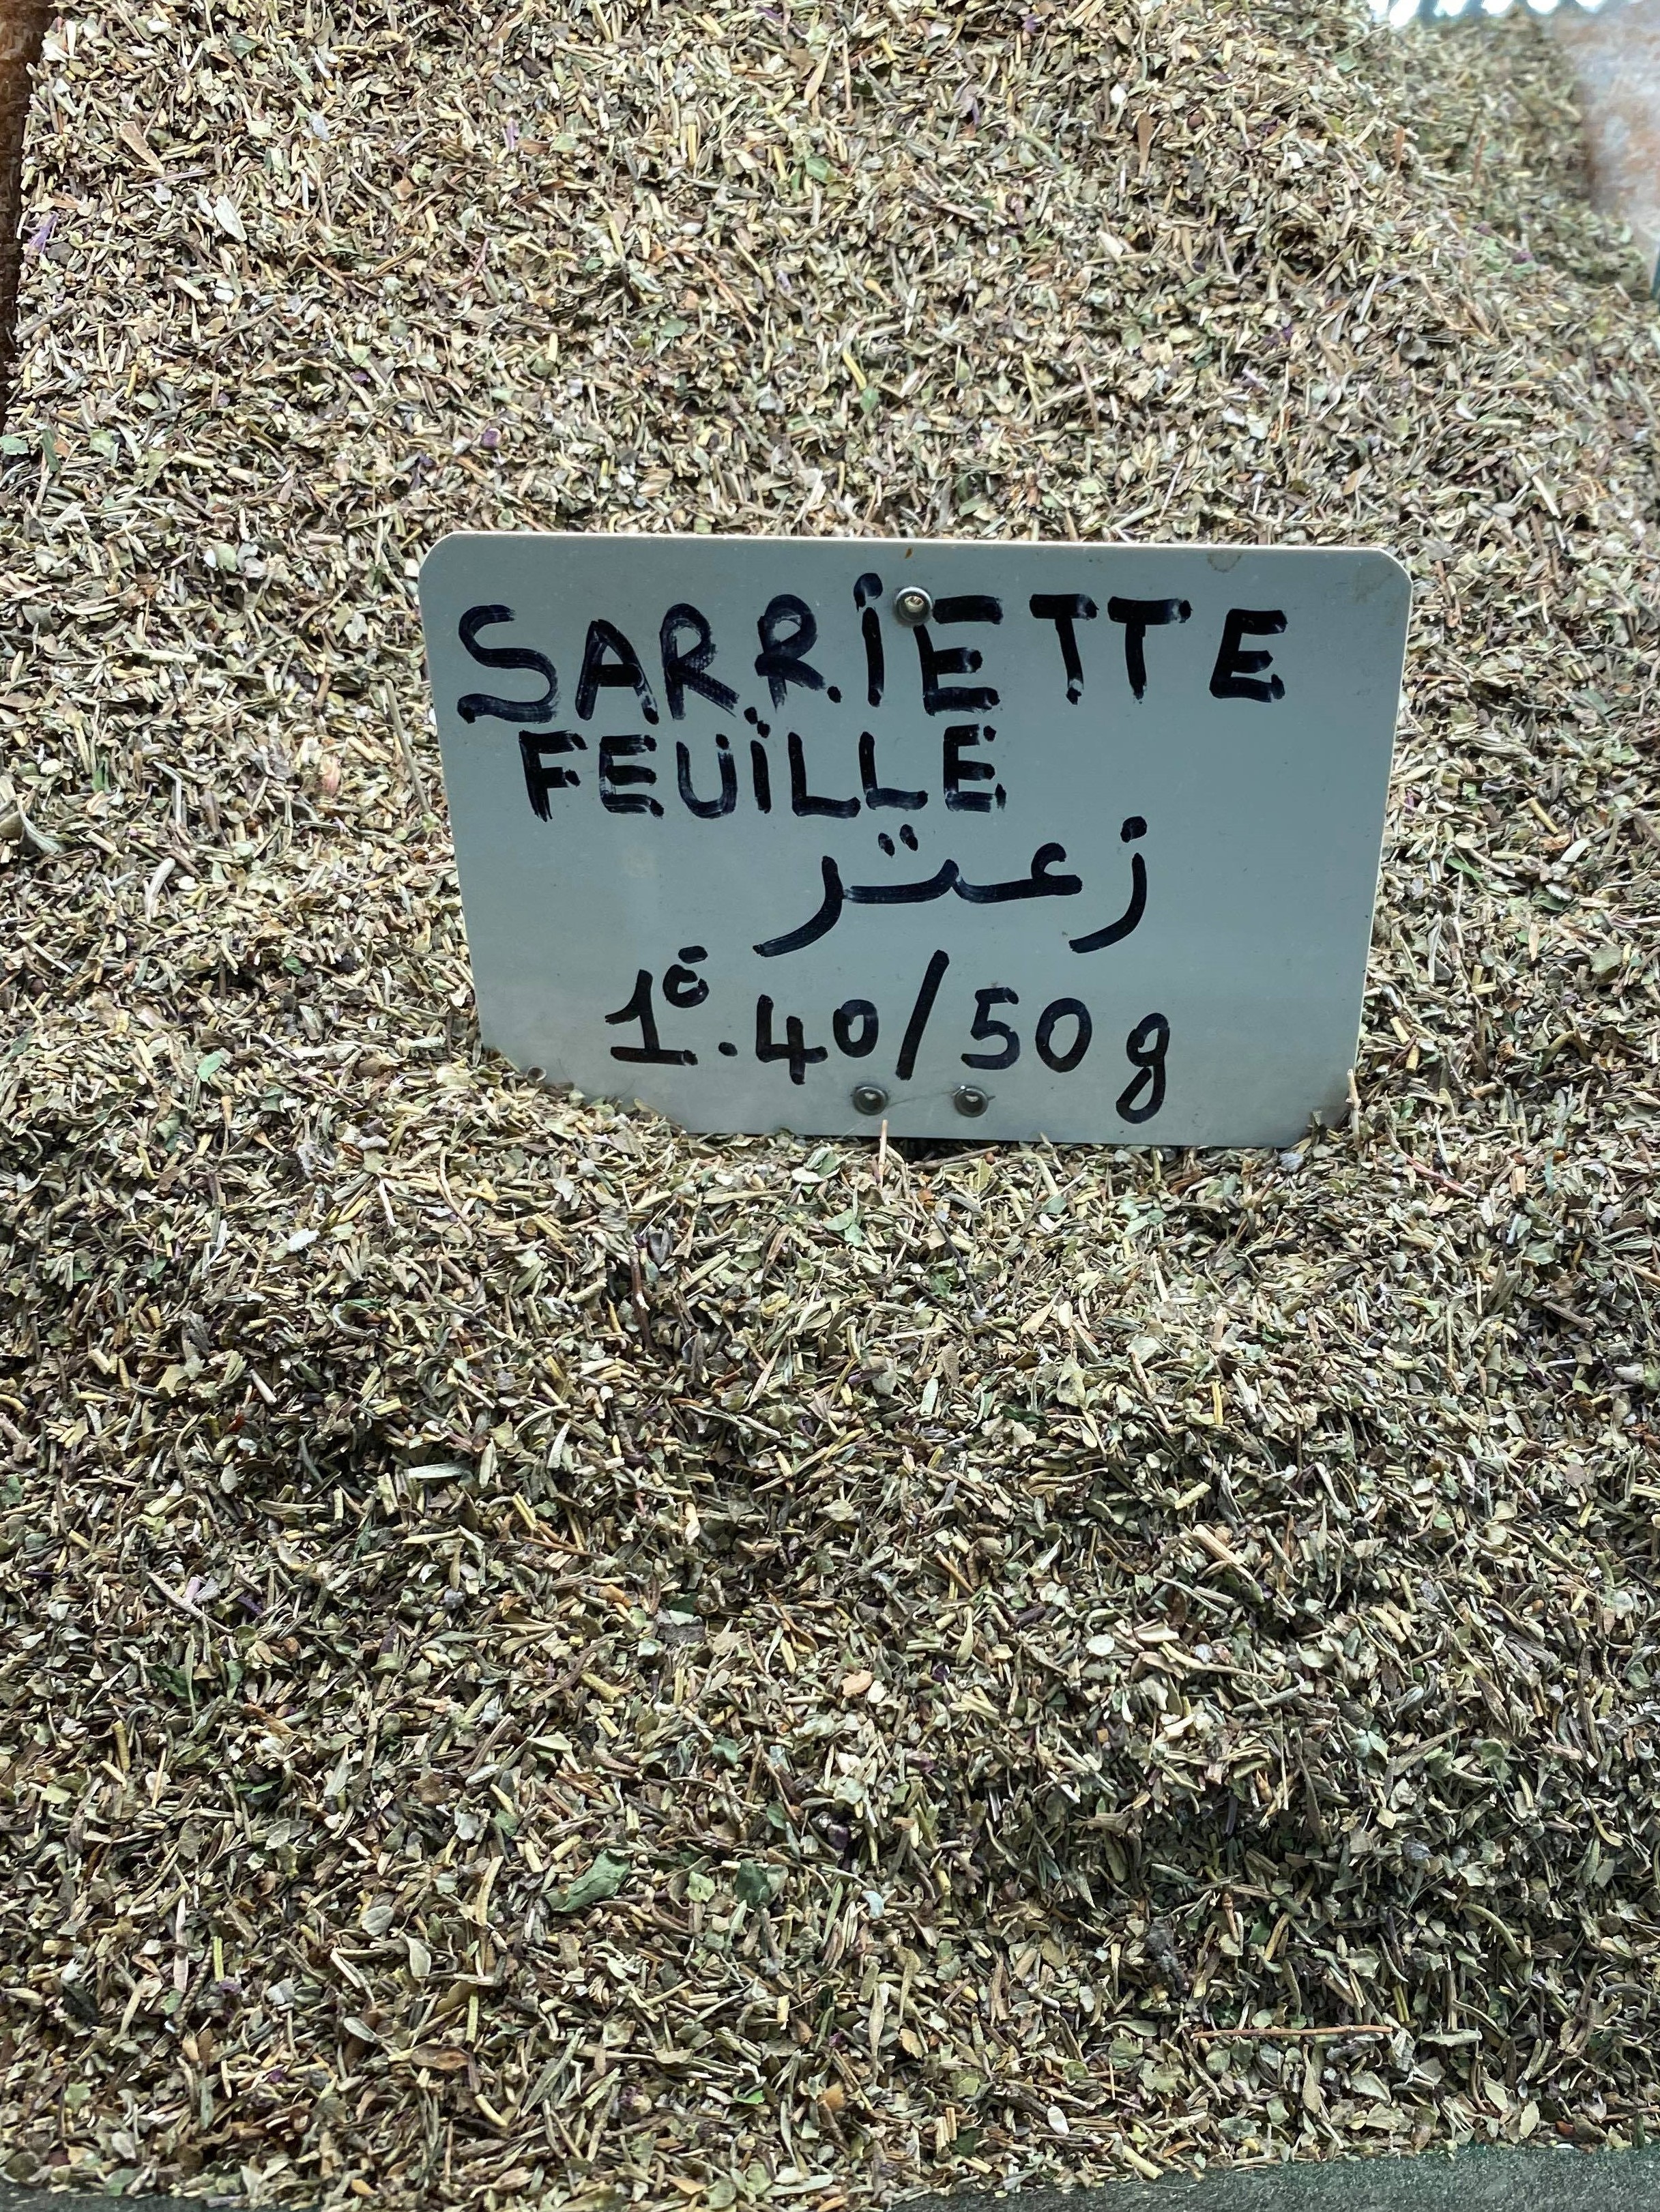 SARRIETTE
FEUILLE
زعتر
1€.40/50g